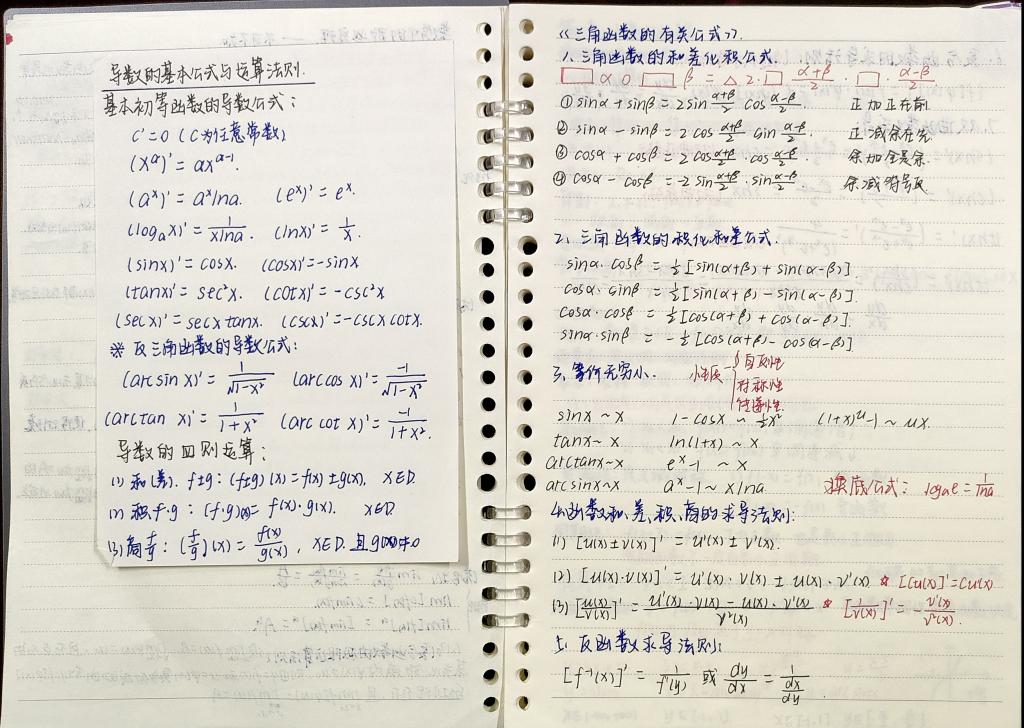 导数的基本公式与运算法则.
基本初等函数的导数公式:
C'=0 (C为任意常数)
(x^α)'=αx^{α-1}.
(a^x)'=a^x lna. (e^x)'=e^x.
(log_a x)'=1/(xlna). (lnx)'=1/x.
(sinx)'=cosx. (cosx)'=-sinx
(tanx)'=sec²x. (cotx)'=-csc²x
(secx)'=secx tanx. (cscx)'=-cscx cotx.
※ 反三角函数的导数公式:
(arcsin x)'=1/√(1-x²) (arccos x)'=-1/√(1-x²)
(arctan x)'=1/(1+x²) (arc cot x)'=-1/(1+x²).
导数的四则运算:
(1) 和(差). f±g: (f±g)(x)=f(x)±g(x), x∈D.
(2) 积f·g: (f·g)(x)=f(x)·g(x). x∈D
(3) 商f/g: (f/g)(x)=f(x)/g(x), x∈D. 且g(x)≠0
《三角函数的有关公式》.
1、三角函数的和差化积公式.
□α○□β=△2·□(α+β)/2·□(α-β)/2
① sinα+sinβ=2sin(α+β)/2 cos(α-β)/2 正加正在前.
② sinα-sinβ=2cos(α+β)/2 sin(α-β)/2. 正减余在先
③ cosα+cosβ=2cos(α+β)/2·cos(α-β)/2. 余加全是余.
④ cosα-cosβ=-2sin(α+β)/2·sin(α-β)/2 余减
2、三角函数的积化和差公式.
sinα·cosβ=½[sin(α+β)+sin(α-β)]
cosα·sinβ=½[sin(α+β)-sin(α-β)].
cosα·cosβ=½[cos(α+β)+cos(α-β)].
sinα·sinβ=-½[cos(α+β)-cos(α-β)]
3、等价无穷小. 性质{自反性
对称性
传递性
sinx~x 1-cosx~½x² (1+x)^u-1~ux.
tanx~x ln(1+x)~x
arctanx~x e^x-1~x
arcsinx~x a^x-1~xlna 换底公式: log_a e=1/lna
4、函数和、差、积、商的求导法则:
(1) [u(x)±v(x)]'=u'(x)±v'(x).
(2) [u(x)·v(x)]'=u'(x)·v(x)±u(x)·v'(x) ☆ [Cu(x)]'=Cu'(x)
(3) [u(x)/v(x)]'=(u'(x)·v(x)-u(x)·v'(x))/v²(x) ☆ [1/v(x)]'=-v'(x)/v²(x).
5、反函数求导法则:
[f⁻¹(x)]'=1/f'(y) 或 dy/dx=1/(dx/dy)